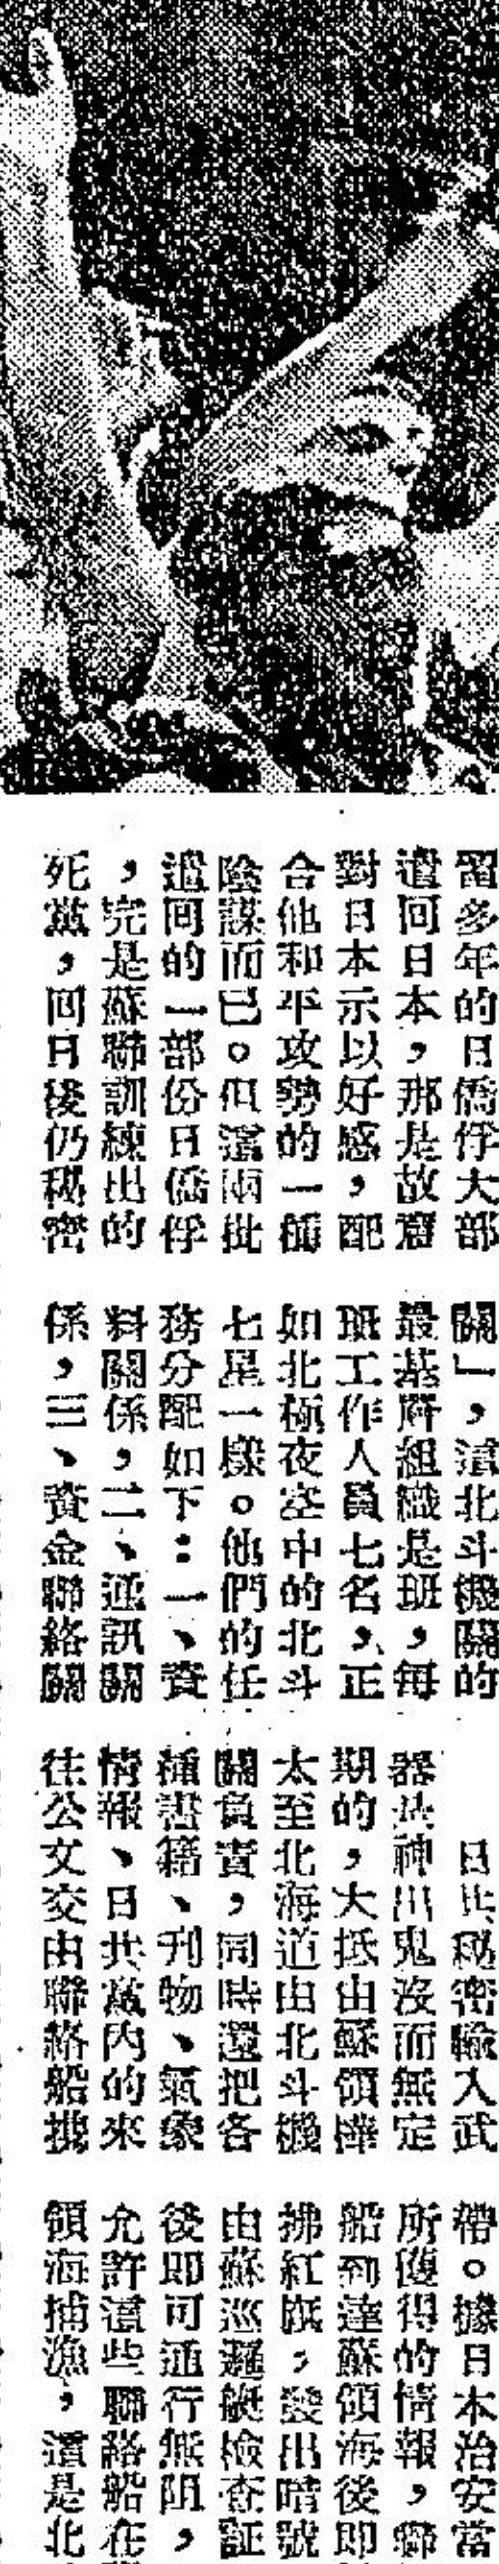 留多年的日僑俘大部
遣回日本，那是故意
對日本示以好感，配
合他和平攻勢的一種
陰謀而已。但這兩批
遣回的一部份日僑俘
，完是蘇聯訓練出的
死黨，回日後仍秘密
關」，這北斗機關的
最基層組織是班，每
班工作人員七名，正
如北極夜空中的北斗
七星一樣。他們的任
務分配如下：一、資
料關係，二、通訊關
係，三、資金聯絡關
日共秘密輸入武
器共神出鬼沒而無定
期的，大抵由蘇領樺
太至北海道由北斗機
關負責，同時還把各
種書籍、刊物、氣象
情報、日共黨內的來
往公文交由聯絡船携
帶。據日本治安當
所獲得的情報，聯
船到達蘇領海後即
拂紅旗，發出暗號
由蘇巡邏艇檢查証
後即可通行無阻，
允許這些聯絡船在
領海捕漁，這是北